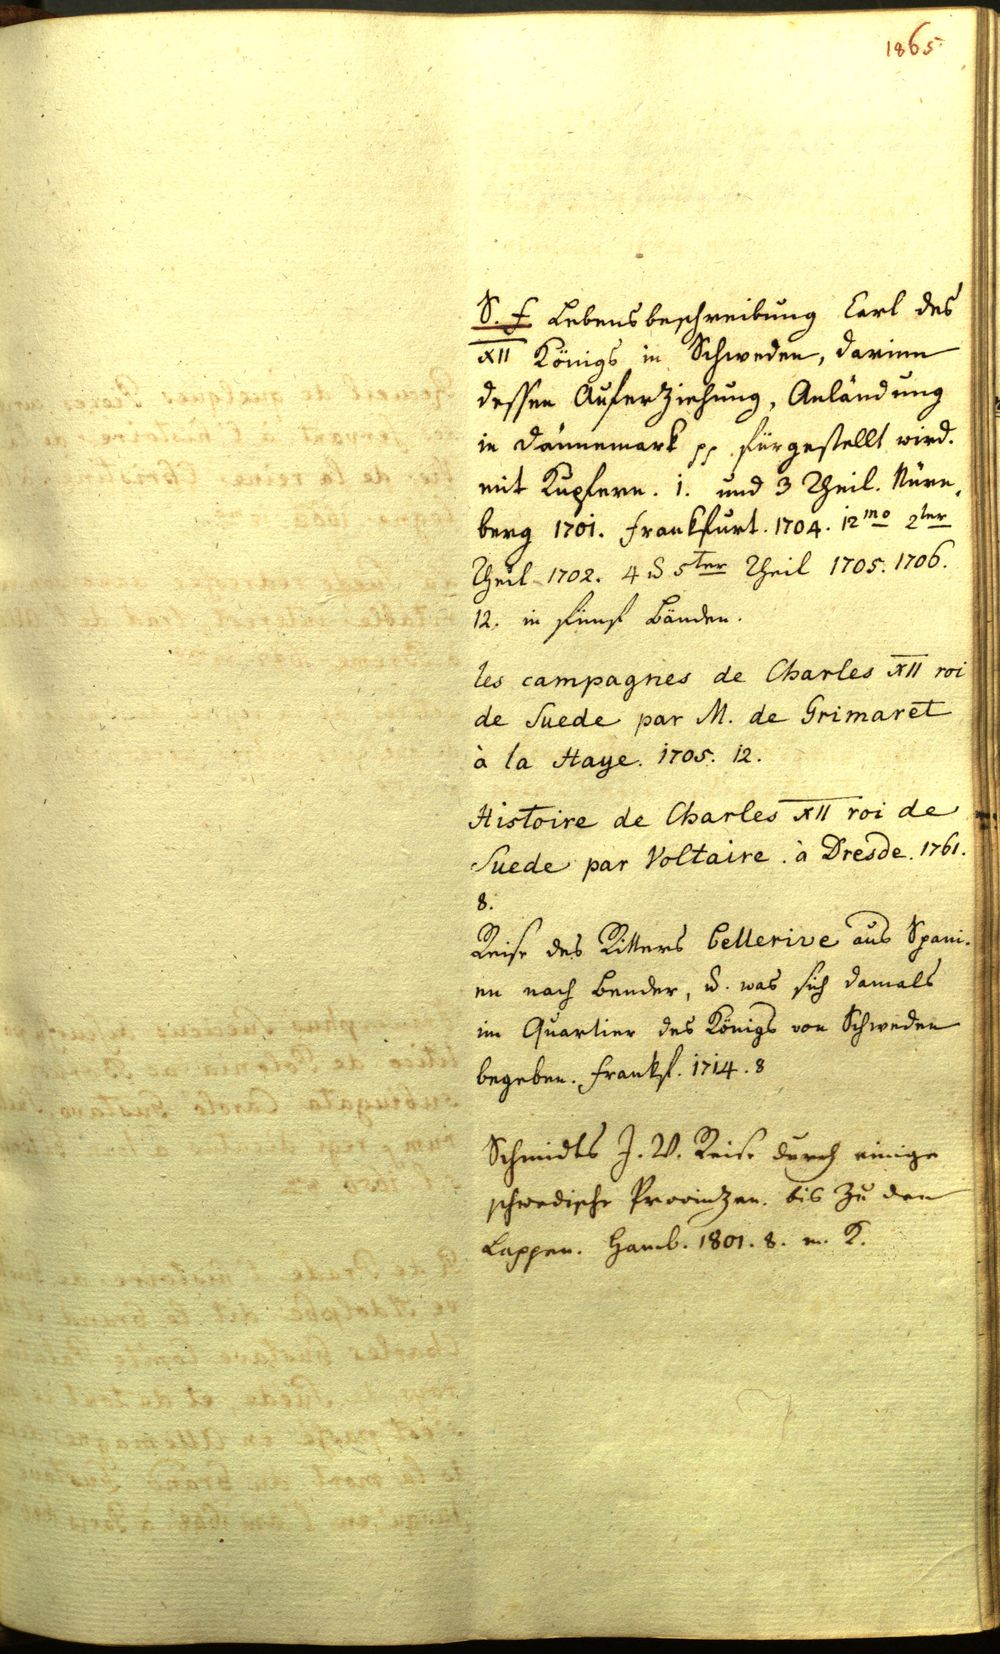 1865
S. F. Lebensbeschreibung Carl des
XII Königs in Schweden, darinn
dessen Auferziehung, Anländung
in Dännemark pp fürgestellt wird.
mit Kupfern. 1. und 3 Theil. Nürn,
berg 1701. Frankfurt. 1704. 12mo 2ter
Theil 1702. 4 u 5ter Theil 1705. 1706.
12. in fünf Bänden.
les campagnes de Charles XII roi
de Suede par M. de Grimaret
à la Haye. 1705. 12.
Histoire de Charles XII roi de
Suede par Voltaire. à Dresde. 1761.
8.
Reise des Ritters Bellerive aus Spani-
en nach Bender, u. was sich damals
im Quartier des Königs von Schweden
begeben. Frankf. 1714. 8
Schmidts J. W. Reise durch einige
schwedische Provinzen. bis zu den
Lappen. Hamb. 1801. 8. m. K.